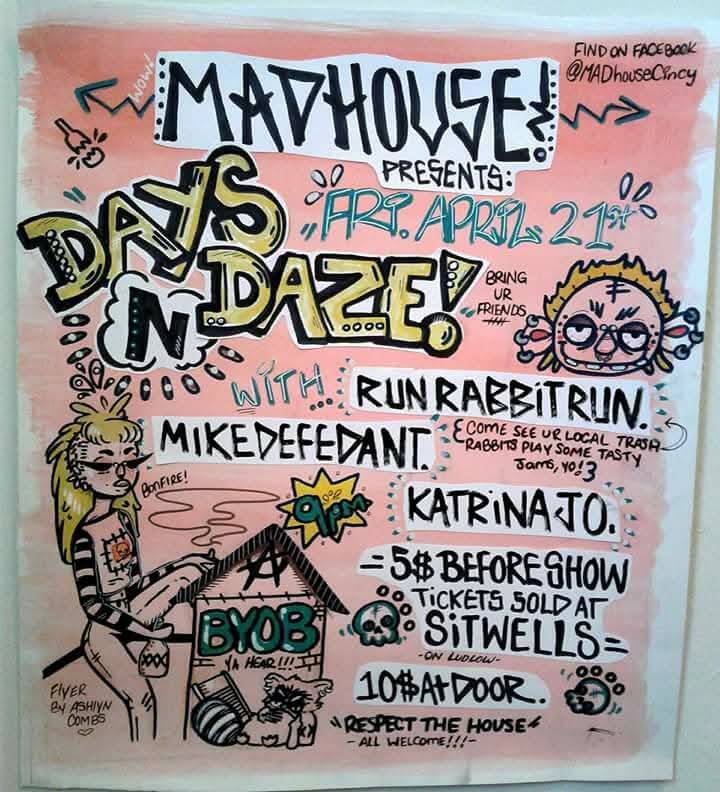 FIND ON FACEBOOK
@MADhouseCincy
WOW!
MADHOUSE!
PRESENTS:
FRI. APRIL 21st
DAYS
N DAZE!
BRING
UR
FRIENDS
WITH...
RUN RABBIT RUN.
COME SEE UR LOCAL TRASH
RABBITS PLAY SOME TASTY
JAMS, YO!
MIKE DEFEDANT.
BONFIRE!
9PM
KATRINA JO.
=5$ BEFORE SHOW
TICKETS SOLD AT
SITWELLS=
-ON LUDLOW-
A
BYOB
YA HEAR!!!
XXX
10$ At DOOR.
"RESPECT THE HOUSE"
-ALL WELCOME!!!-
FLYER
BY ASHLYN
COMBS